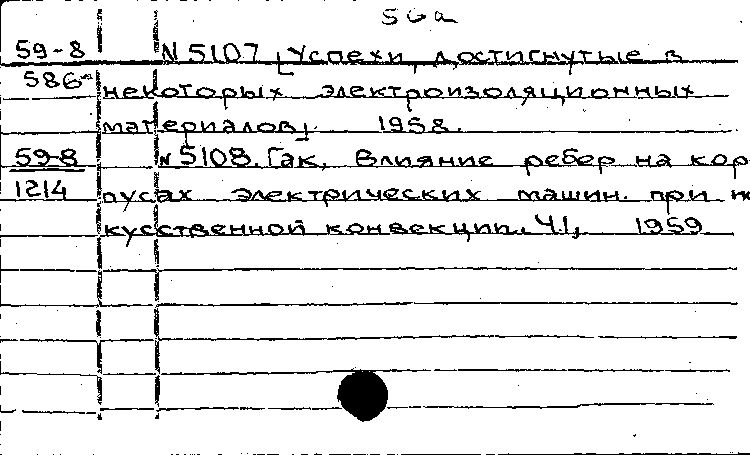 56а
59-8 N 5107. [Успехи, достигнутые в
586а некоторых электроизоляционных
материалов]. 1958.
59-8 N 5108. Гак. Влияние ребер на кор
1214 пусах электрических машин при и
кусственной конвекции. Ч.1, 1959